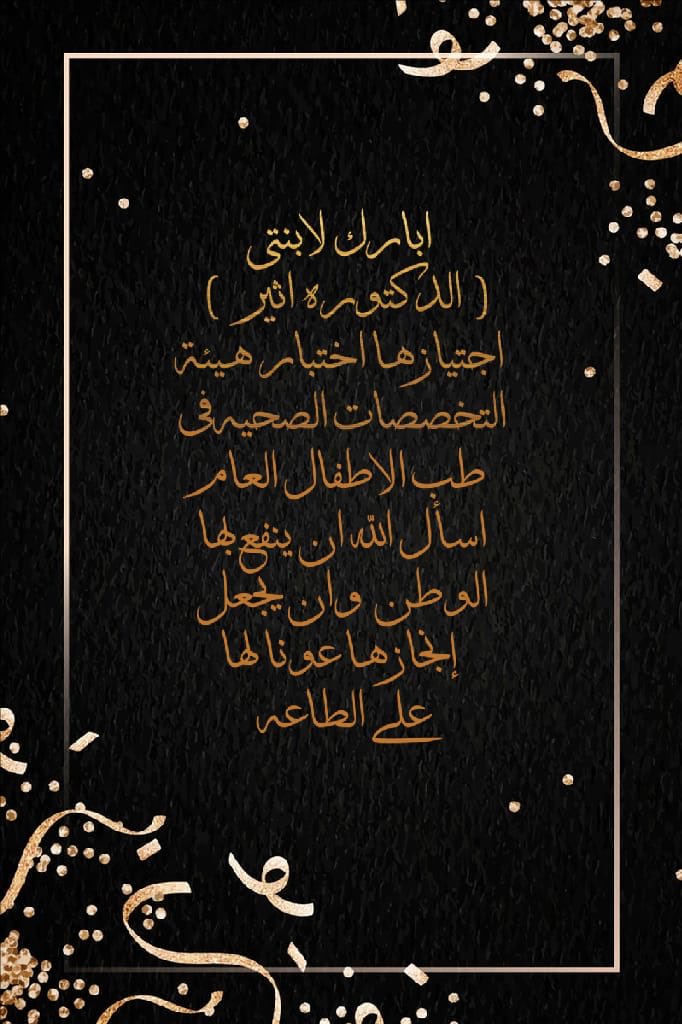 ابارك لابنتي
( الدكتوره اثير )
اجتيازها اختبار هيئة
التخصصات الصحيه في
طب الاطفال العام
اسأل الله ان ينفع بها
الوطن وان يجعل
إنجازها عونا لها
على الطاعه